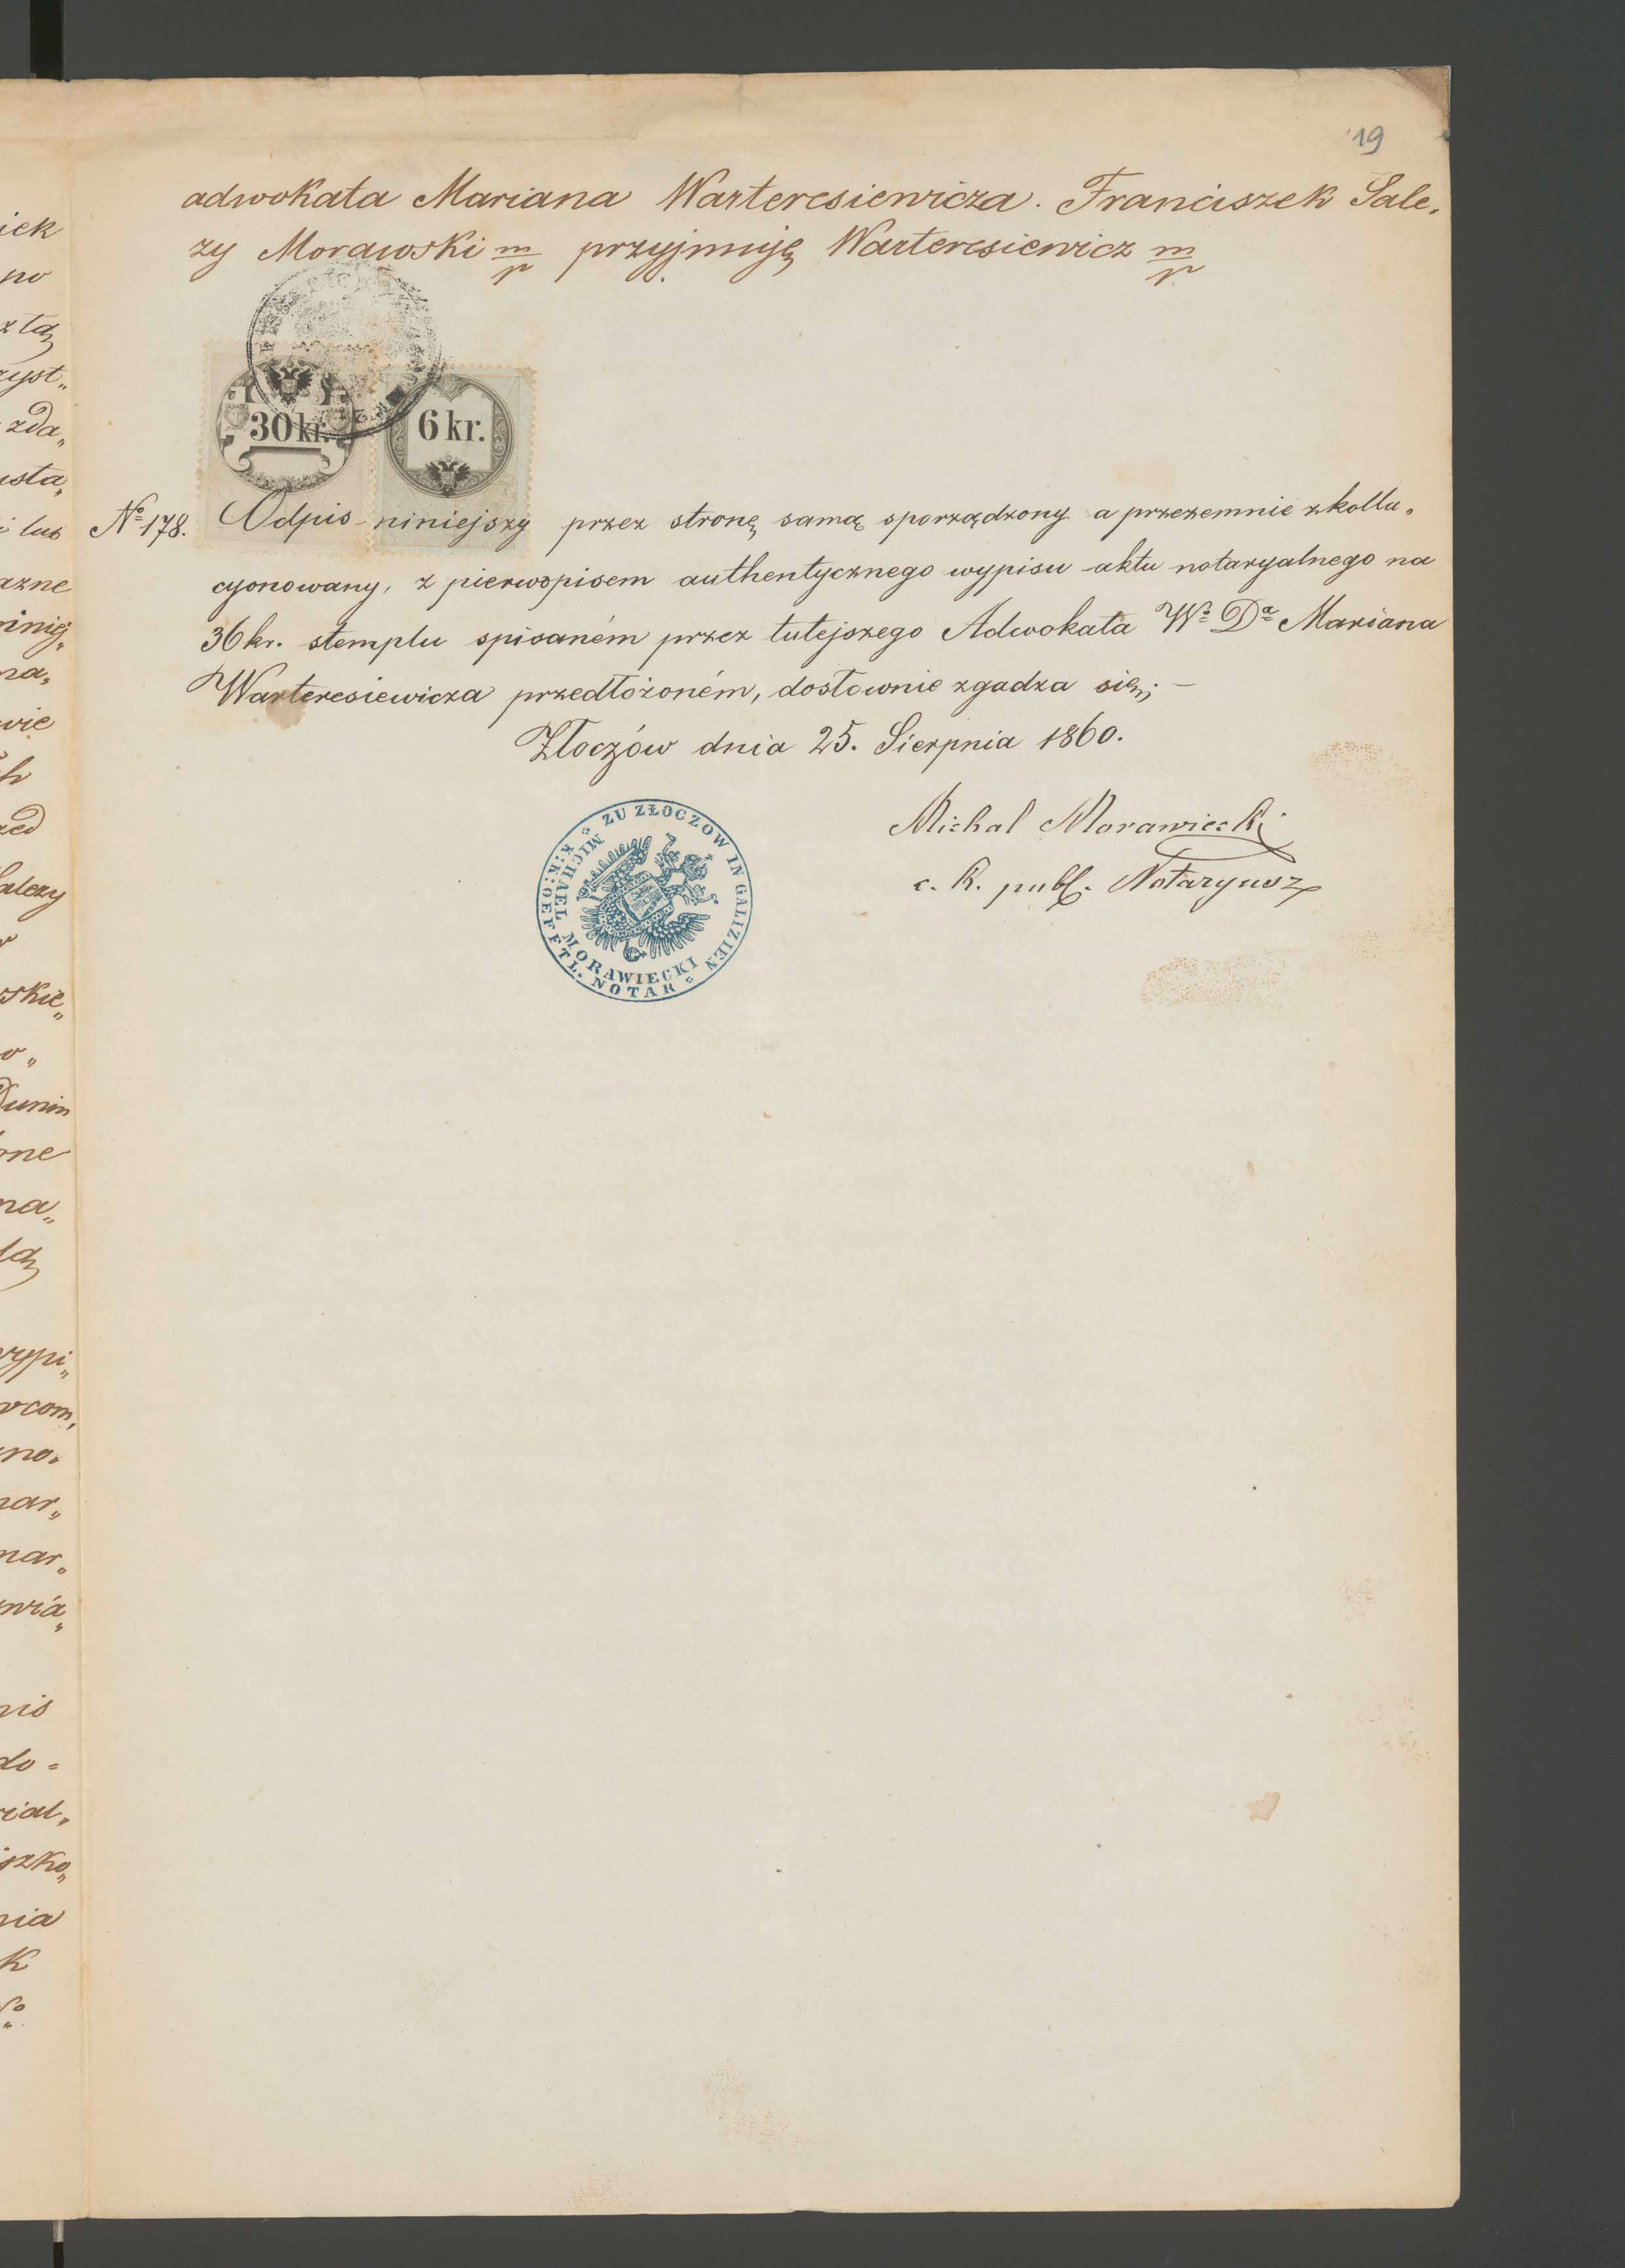 19
adwokata Mariana Warteresiewicza. Franciszek Sale„
zy Morawski m/p przyjmuję Warteresiewicz m/p
30 kr.
6 kr.
No 178. Odpis niniejszy przez stronę samą sporządzony a przezemnie zkolla„
cyonowany, z pierwopisem authentycznego wypisu aktu notaryalnego na
36 kr. stemplu spisaném przez tutejszego Adwokata Wo Da Mariana
Warteresiewicza przedłożoném, dosłownie zgadza się; —
Złoczów dnia 25. Sierpnia 1860.
Michal Morawiecki
c. k. publ. Notaryusz
ZU ZŁOCZOW IN GALIZIEN
K: K: OEFFTL. NOTAR
MICHAEL MORAWIECKI
iek
no
zda„
i lub
azne
wie
zed
alezy
skie„
Dunin
one
na„
wypi„
wcom„
no„
nar„
mar„
wia„
pis
do =
rial„
szko„
nia
k